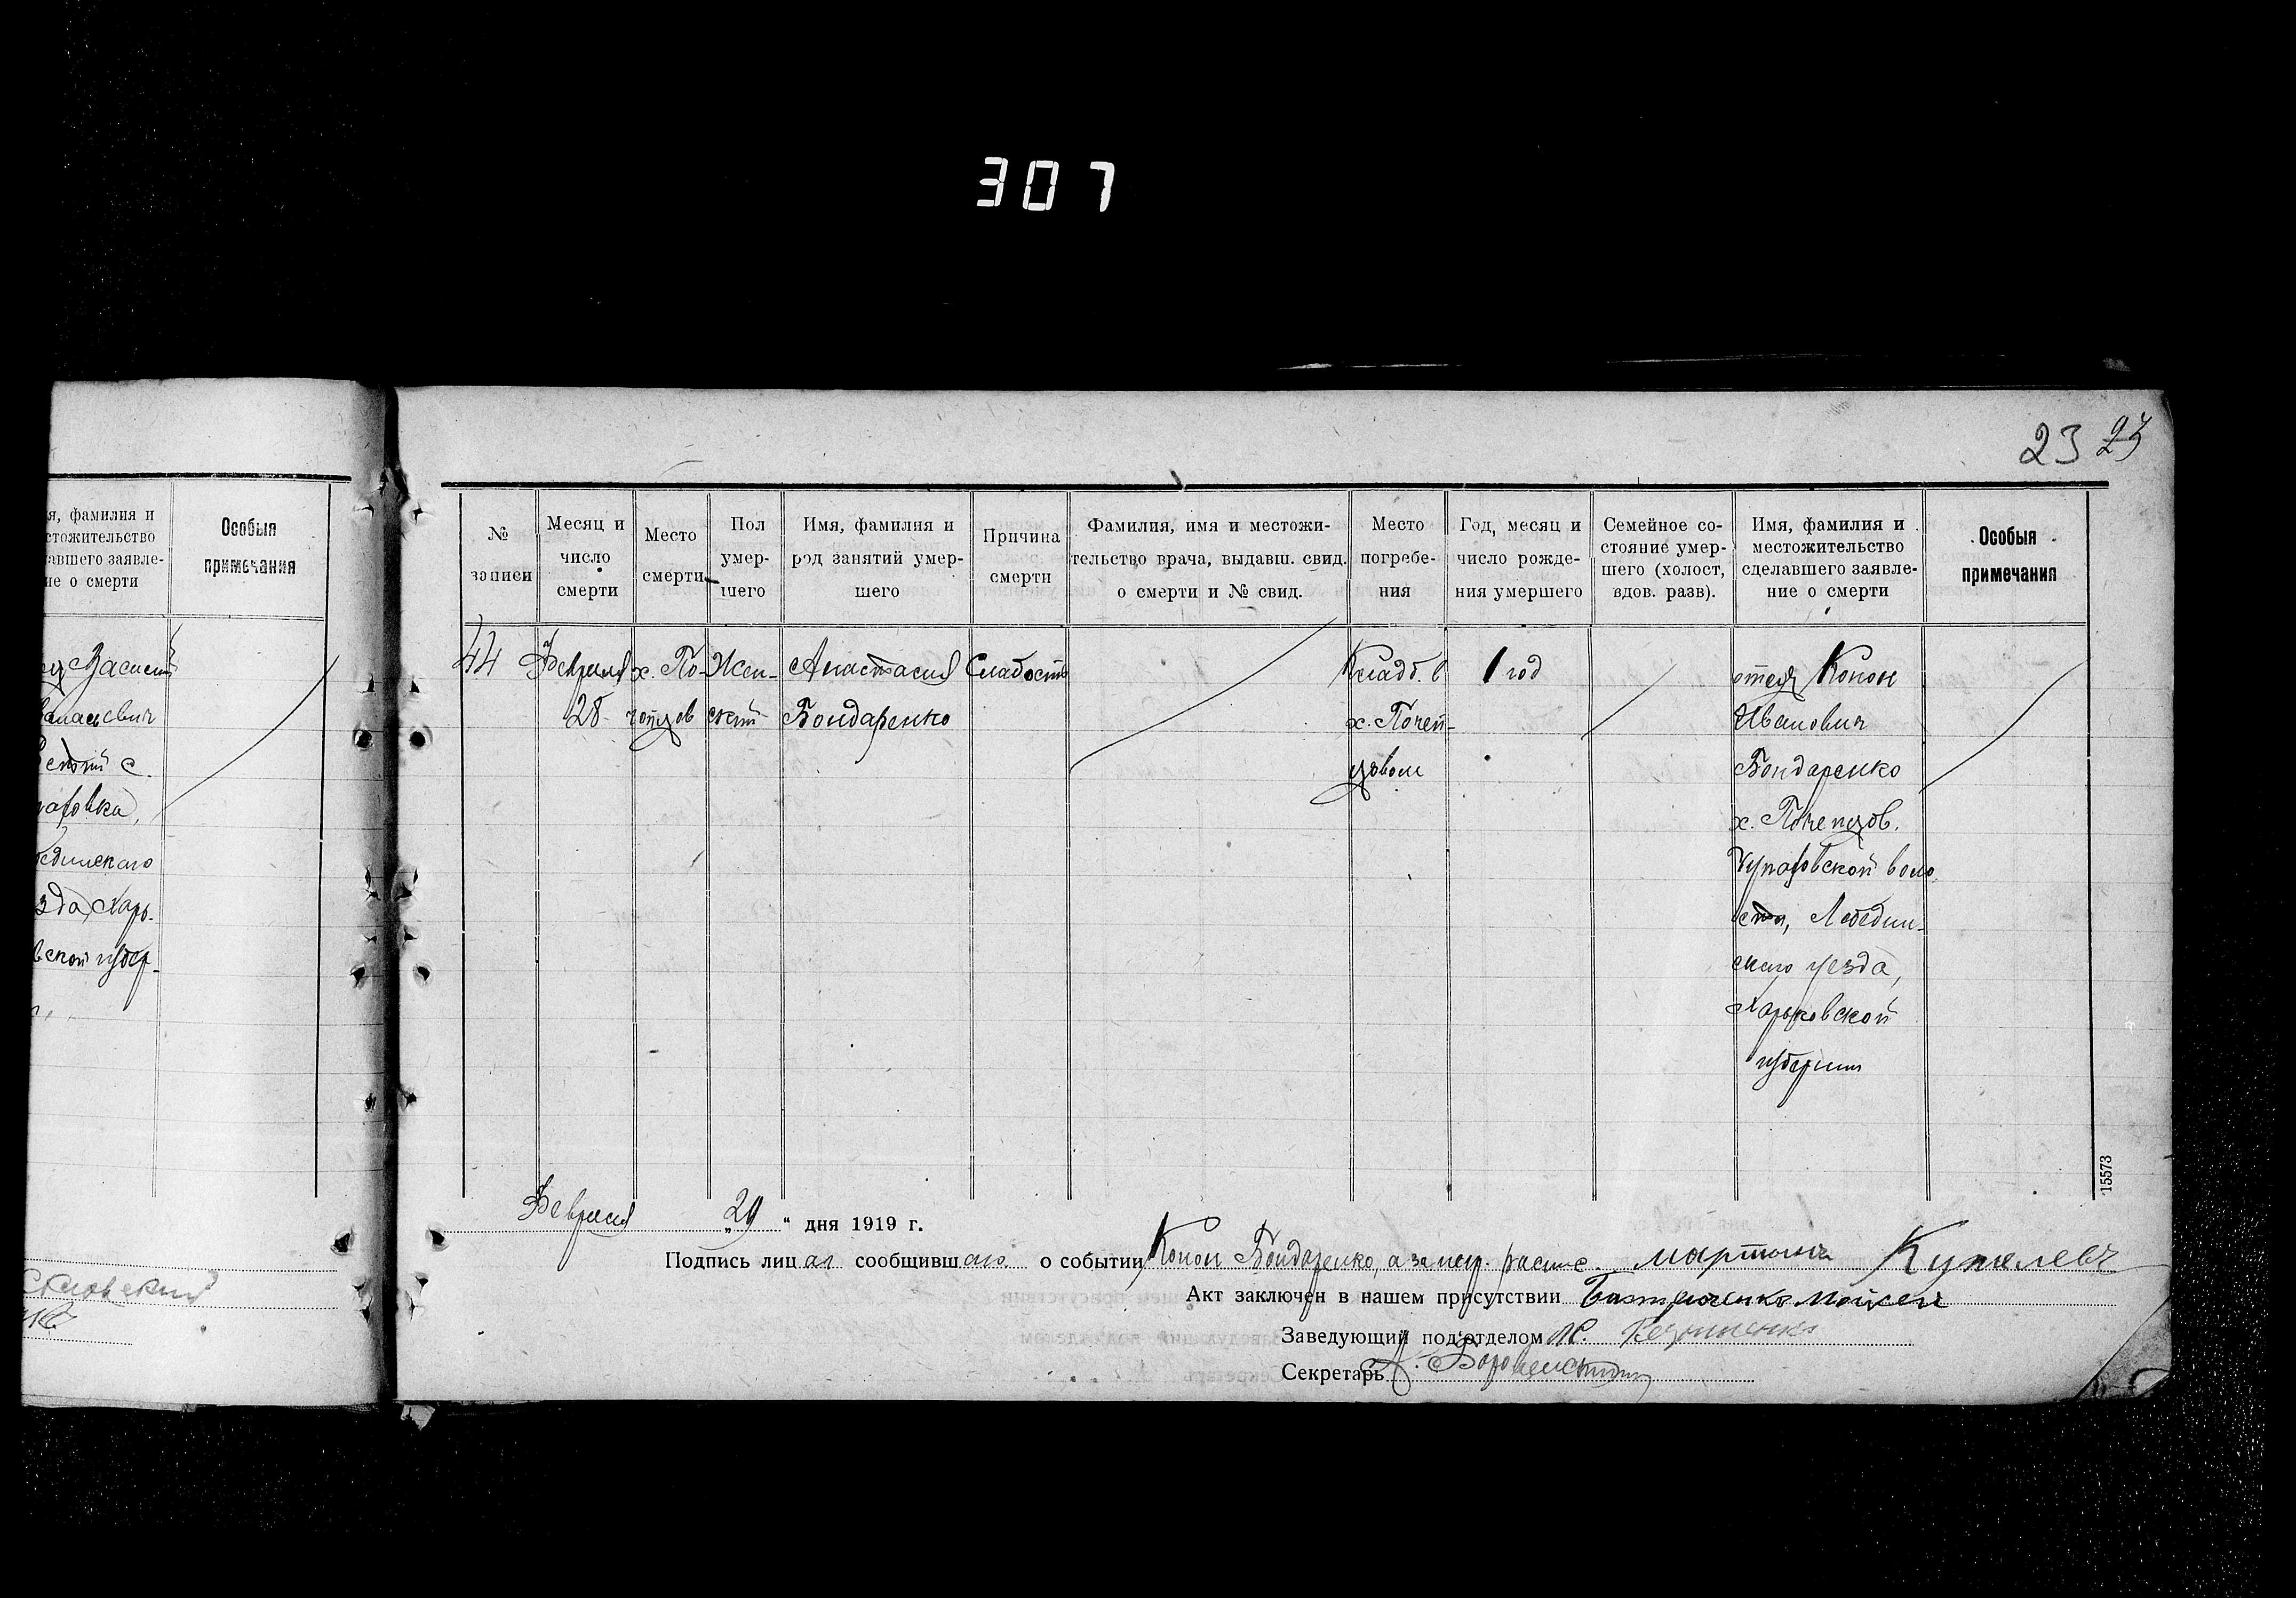 307
23 23
я, фамилия и
стожительство
авшего заявле-
ие о смерти
Особыя
примечания
Василий
с.
зда, Харь-
вской губер-
№
записи
Месяц и
число
смерти
Место
смерти
Пол
умер-
шего
Имя, фамилия и
род занятий умер-
шего
Причина
смерти
Фамилия, имя и местожи-
тельство врача, выдавш. свид.
о смерти и № свид.
Место
погребе-
ния
Год, месяц и
число рожде-
ния умершего
Семейное со-
стояние умер-
шего (холост,
вдов. разв).
Имя, фамилия и
местожительство
сделавшего заявле-
ние о смерти
Особыя
примечания
44
Февраля
28
х. По-
чепцов
Жен-
ский
Анастасия
Бондаренко
Слабость
Кладб. в
х. Почеп-
цовом
1 год
отец Конон
Иванович
Бондаренко
х. Почепцов.
Чупаховской воло
сти, Лебедин-
скаго уезда,
Харьковской
губернии
15573
Февраля „29 “ дня 1919 г.
Подпись лица сообщившаго о событии Конон Бондаренко, а за негр. распис. Мартын
Акт заключен в нашем присутствии Моисей
Заведующий под'отделом
Секретарь